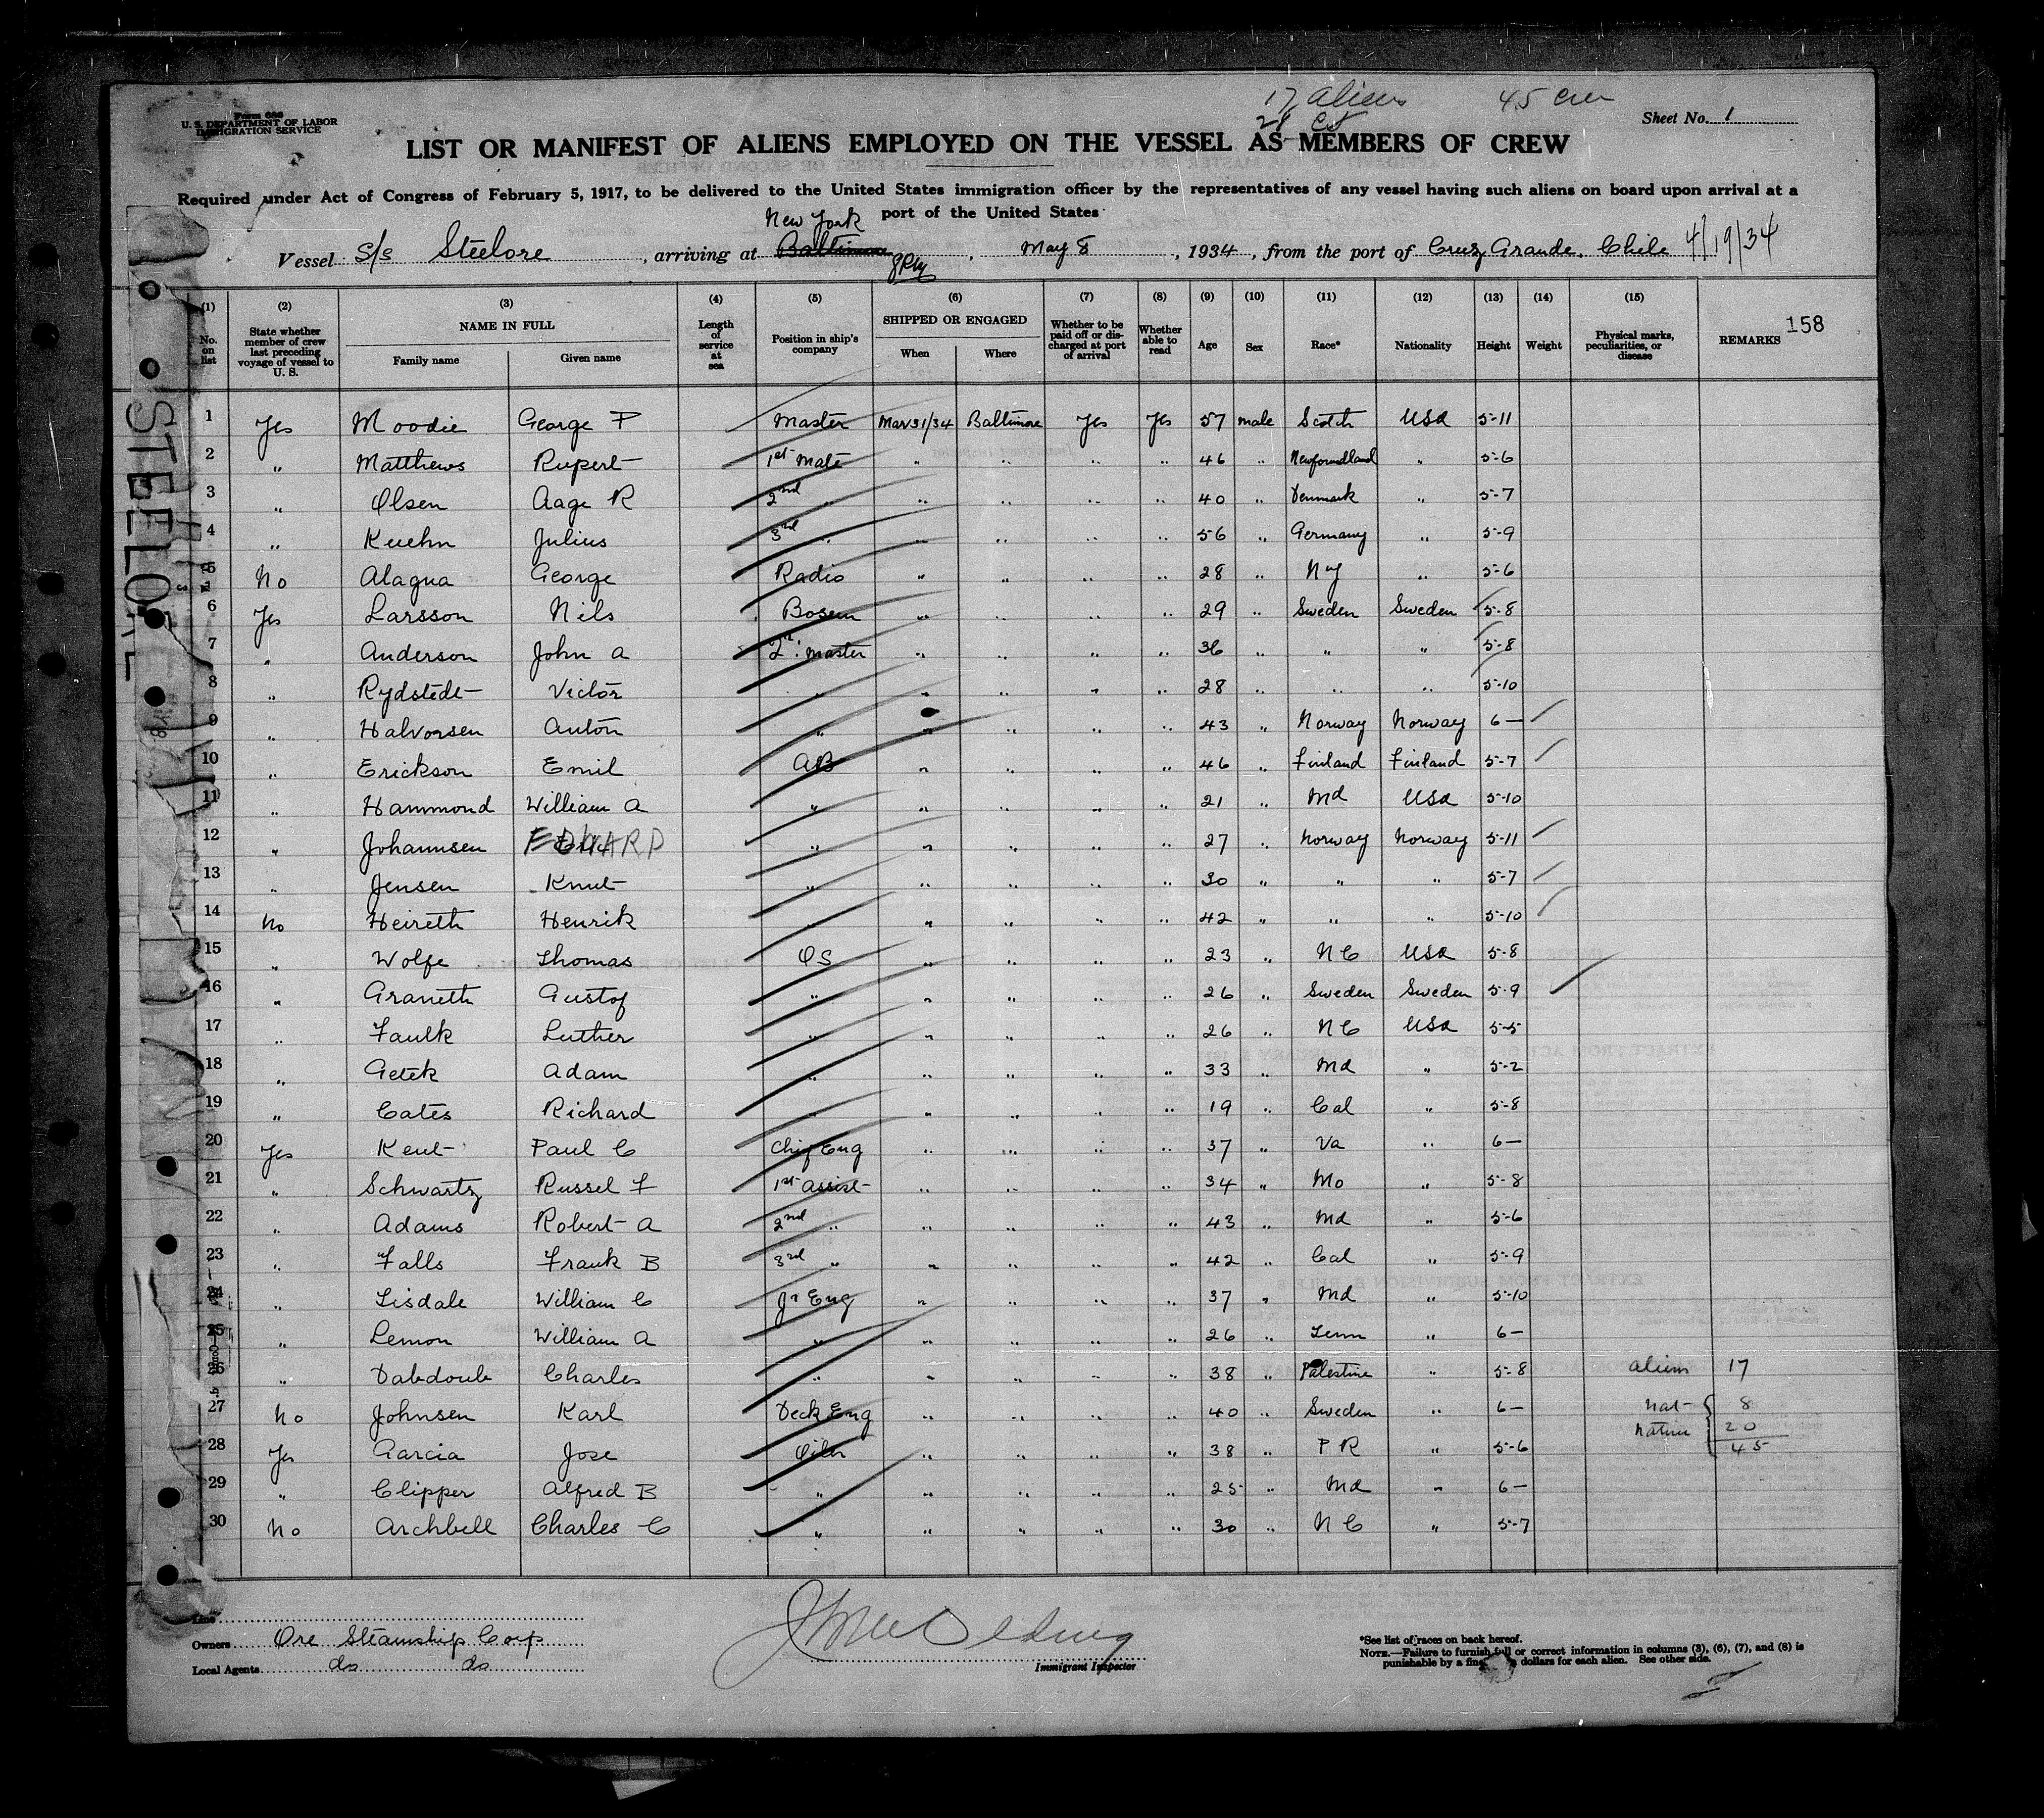 17 aliens 45 crew
28 CS
Form 680
U. S. DEPARTMENT OF LABOR
IMMIGRATION SERVICE
Sheet No. 1
LIST OR MANIFEST OF ALIENS EMPLOYED ON THE VESSEL AS MEMBERS OF CREW
Required under Act of Congress of February 5, 1917, to be delivered to the United States immigration officer by the representatives of any vessel having such aliens on board upon arrival at a
port of the United States
New York
Vessel S/S Steelore, arriving at Baltimore, May 8, 1934, from the port of Cruz Grande, Chile 4/19/34
(1) (2) (3) (4) (5) (6) (7) (8) (9) (10) (11) (12) (13) (14) (15)
No. on list State whether member of crew last preceding voyage of vessel to U. S. NAME IN FULL Family name Given name Length of service at sea Position in ship's company SHIPPED OR ENGAGED When Where Whether to be paid off or discharged at port of arrival Whether able to read Age Sex Race* Nationality Height Weight Physical marks, peculiarities, or disease REMARKS 158
STEELORE
1 Yes Moodie George P Master Mar 31/34 Baltimore Yes Yes 57 male Scotch USA 5-11
2 " Matthews Rupert 1st Mate " " " " 46 " Newfoundland " 5-6
3 " Olsen Aage R 2nd " " " " " 40 " Denmark " 5-7
4 " Kuehn Julius 3rd " " " " " 56 " Germany " 5-9
5 No Alagna George Radio " " " " 28 " NY " 5-6
6 Yes Larsson Nils Bosun " " " " 29 " Sweden Sweden 5-8
7 " Anderson John A Q. Master " " " " 36 " " " 5-8
8 " Rydstedt Victor " " " " " 28 " " " 5-10
9 " Halvorsen Anton " " " " " 43 " Norway Norway 6 —
10 " Erickson Emil AB " " " " 46 " Finland Finland 5-7
11 " Hammond William A " " " " " 21 " Md USA 5-10
12 " Johannsen EDWARD " " " " " 27 " Norway Norway 5-11
13 " Jensen Knut " " " " " 30 " " " 5-7
14 No Heireth Henrik " " " " 42 " " " 5-10
15 " Wolfe Thomas OS " " " " 23 " NC USA 5-8
16 " Graneth Gustof " " " " " 26 " Sweden Sweden 5-9
17 " Faulk Luther " " " " " 26 " NC USA 5-5
18 " Getek Adam " " " " " 33 " Md " 5-2
19 " Cates Richard " " " " " 19 " Cal " 5-8
20 Yes Kent Paul C Chief Eng " " " " 37 " Va " 6 —
21 " Schwartz Russel F 1st Assist " " " " 34 " Mo " 5-8
22 " Adams Robert A 2nd " " " " " 43 " Md " 5-6
23 " Falls Frank B 3rd " " " " " 42 " Cal " 5-9
24 " Tisdale William C Jr Eng " " " " 37 " Md " 5-10
25 " Lemon William A " " " " " 26 " Tenn " 6 —
26 " Dabdoub Charles " " " " " 38 " Palestine " 5-8 aliens 17
27 No Johnsen Karl Deck Eng " " " " 40 " Sweden " 6 — Nat 8
28 Yes Garcia Jose Oiler " " " " 38 " P R " 5-6 Native 20
45
29 " Clipper Alfred B " " " " " 25 " Md " 6 —
30 No Archbell Charles C " " " " " 30 " NC " 5-7
Line
Owners Ore Steamship Corp
Local Agents do do
Immigrant Inspector
*See list of races on back hereof.
NOTE.—Failure to furnish full or correct information in columns (3), (6), (7), and (8) is
punishable by a fine dollars for each alien. See other side.